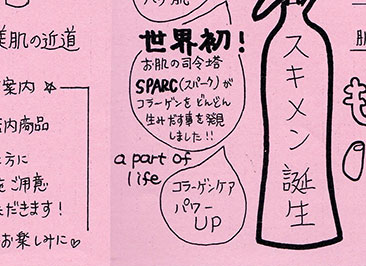 美肌の近道
案内 ☆
店内商品
方に
をご用意
だきます！
お楽しみに♡
世界初！
お肌の司令塔
SPARC(スパーク)が
コラーゲンを どんどん
生みだす事を発見
しました!!
a part of
life
コラーゲンケア
パワー
UP
スキメン誕生
肌
も